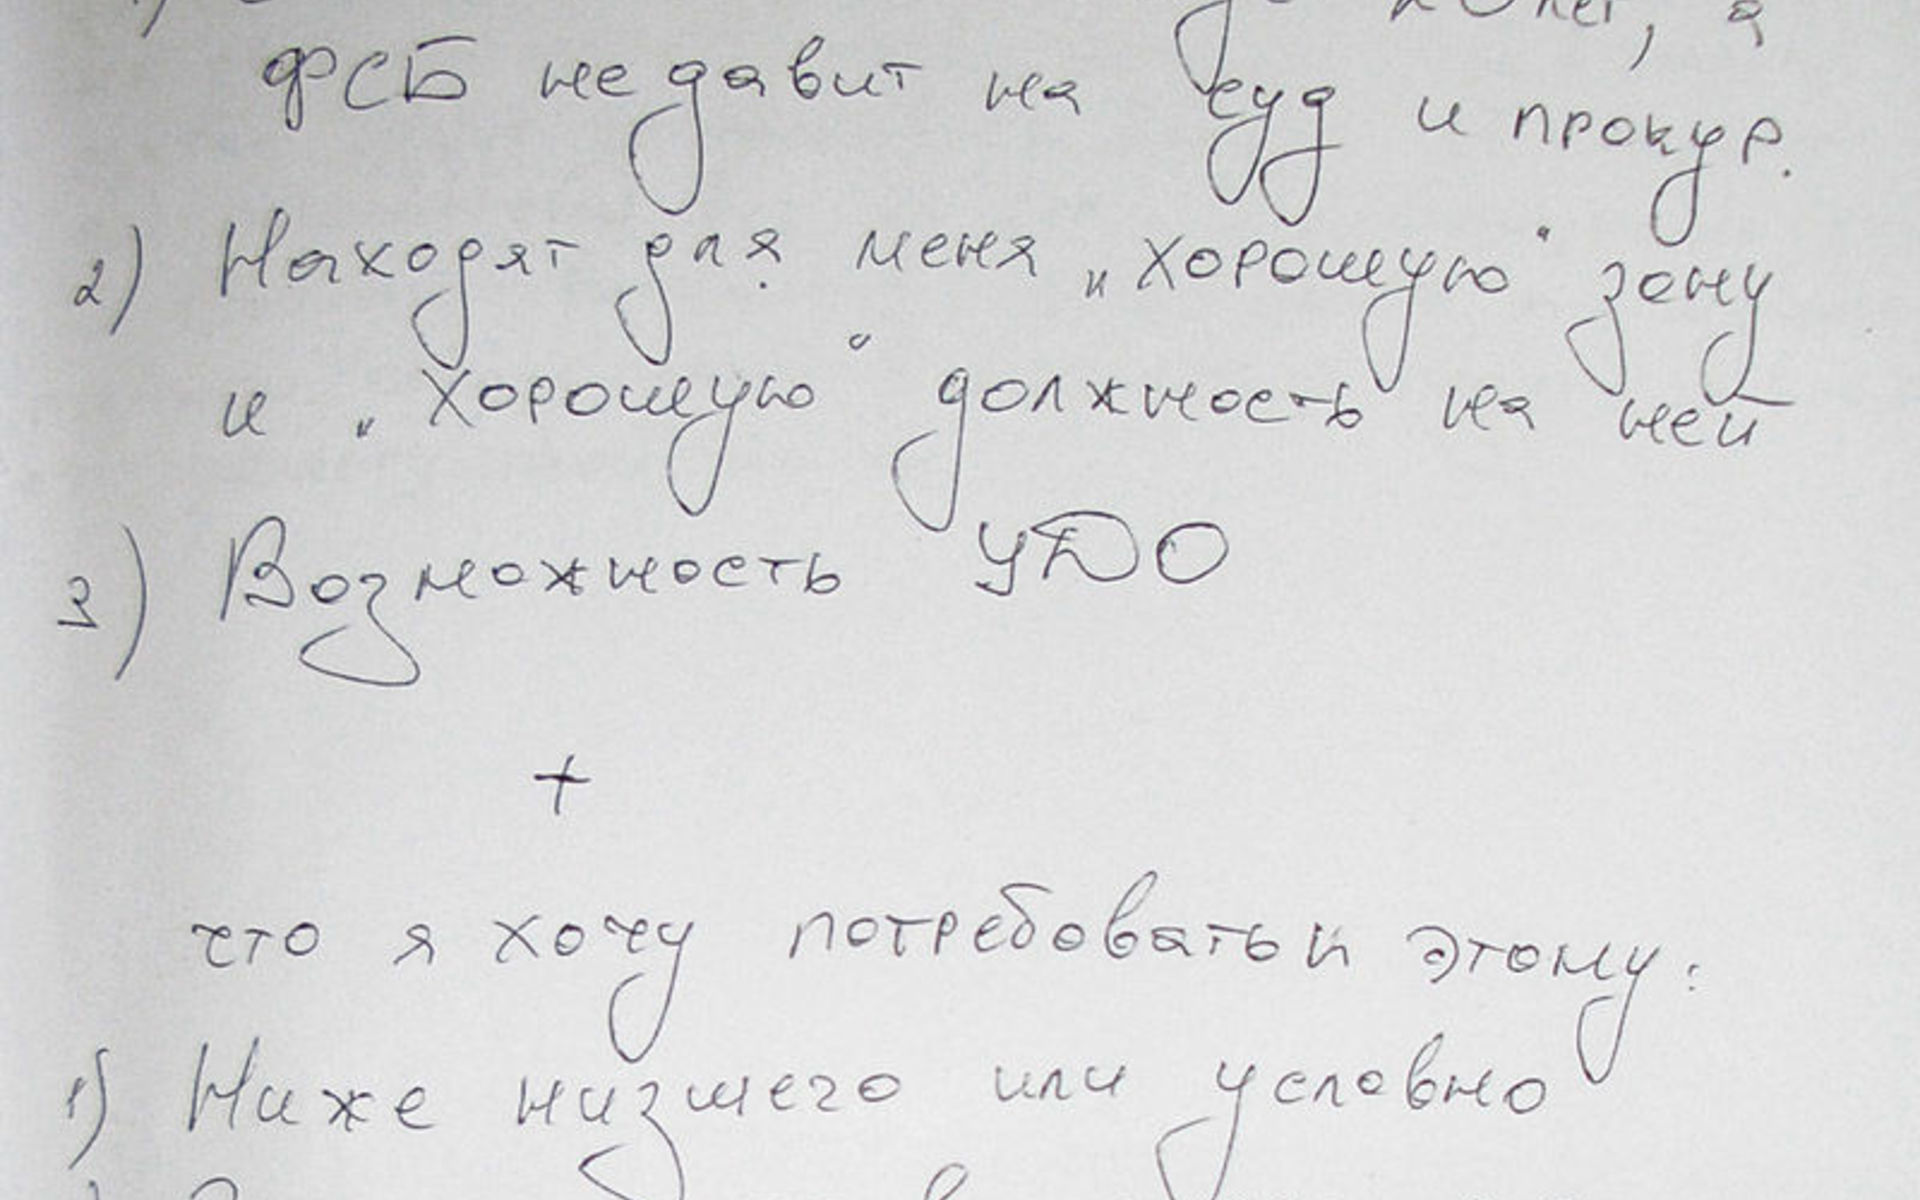 лет, а
ФСБ не давит на суд и прокур.
2) Находят для меня „хорошую“ зону
и „хорошую“ должность на ней
3) Возможность УДО
+
что я хочу потребовать к этому:
1) Ниже низшего или условно